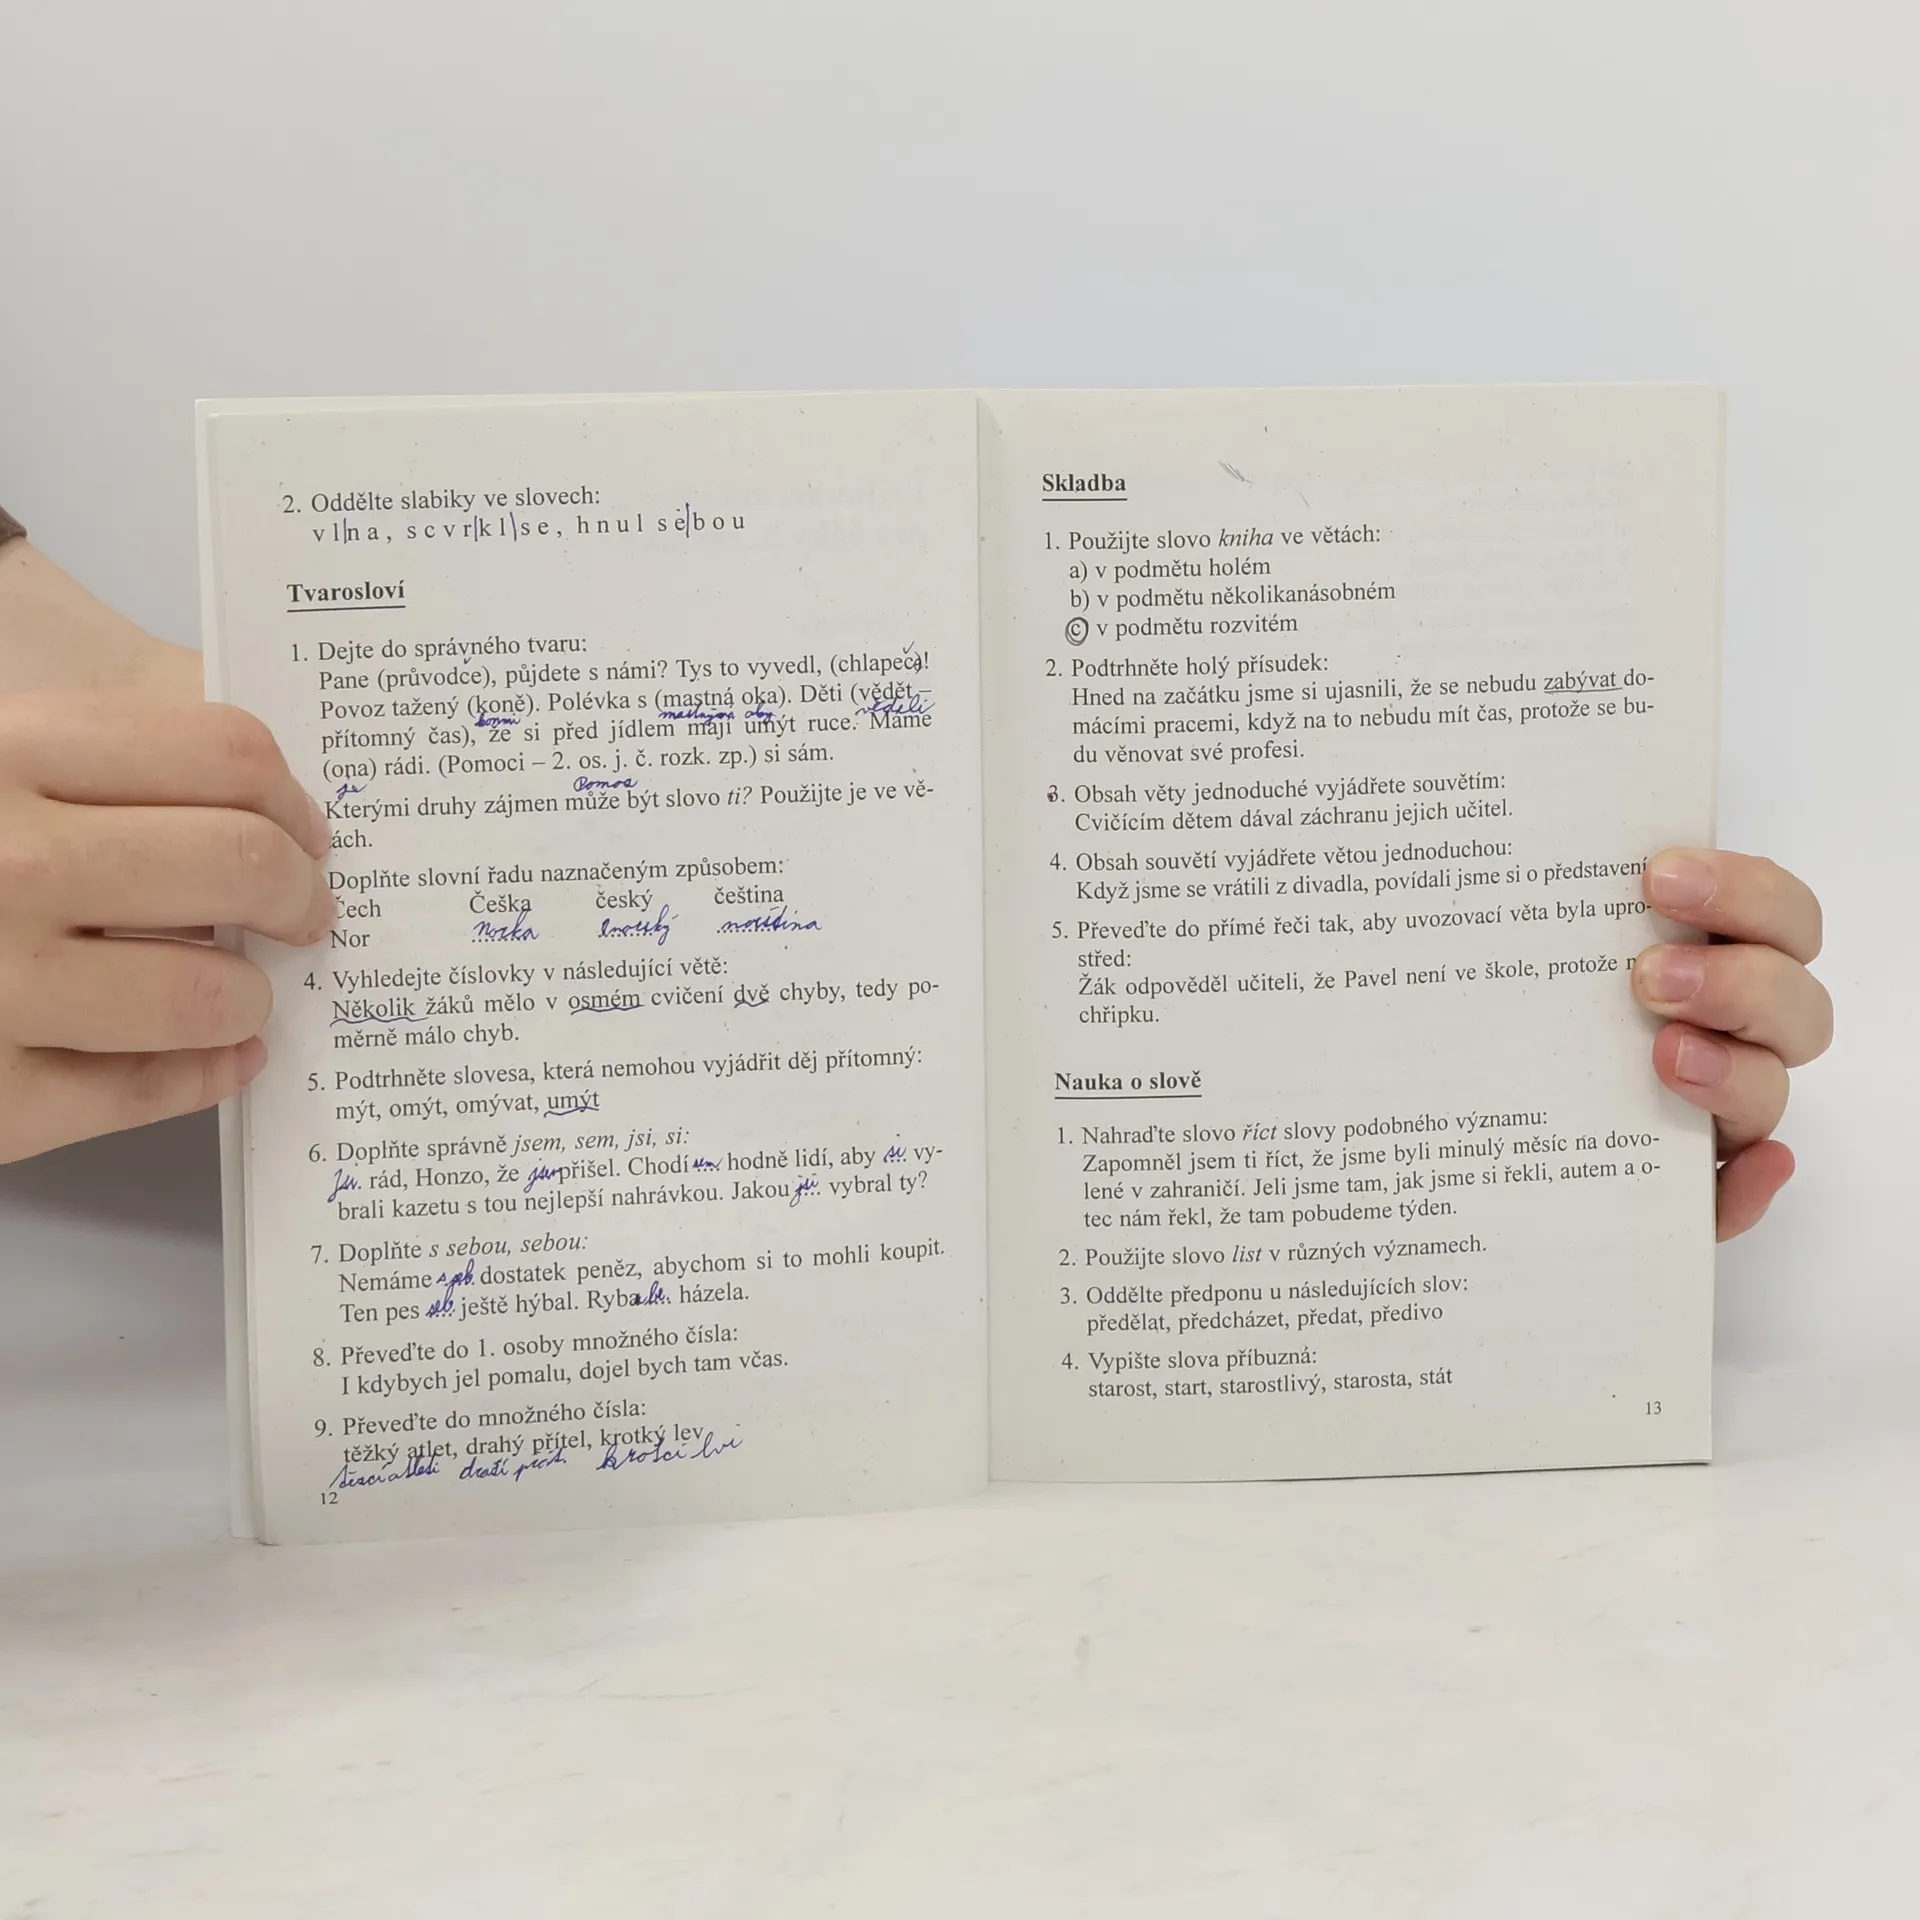 2. Oddělte slabiky ve slovech:
vl|na, scvr|kl|se, hnul se|bou
Tvarosloví
1. Dejte do správného tvaru:
Pane (průvodce), půjdete s námi? Tys to vyvedl, (chlapec)!
Povoz tažený (koně). Polévka s (mastná oka). Děti (vědět –
koňmi věděli
přítomný čas), že si před jídlem mají umýt ruce. Máme
(ona) rádi. (Pomoci – 2. os. j. č. rozk. zp.) si sám.
je Pomoz
Kterými druhy zájmen může být slovo ti? Použijte je ve vě-
ách.
Doplňte slovní řadu naznačeným způsobem:
Čech Češka český čeština
Nor Norka norština
4. Vyhledejte číslovky v následující větě:
Několik žáků mělo v osmém cvičení dvě chyby, tedy po-
měrně málo chyb.
5. Podtrhněte slovesa, která nemohou vyjádřit děj přítomný:
mýt, omýt, omývat, umýt
6. Doplňte správně jsem, sem, jsi, si:
rád, Honzo, že přišel. Chodí sem hodně lidí, aby si vy-
brali kazetu s tou nejlepší nahrávkou. Jakou jsi vybral ty?
7. Doplňte s sebou, sebou:
Nemáme dostatek peněz, abychom si to mohli koupit.
Ten pes seb. ještě hýbal. Ryba házela.
8. Převeďte do 1. osoby množného čísla:
I kdybych jel pomalu, dojel bych tam včas.
9. Převeďte do množného čísla:
těžký atlet, drahý přítel, krotký lev
drazí krotcí lvi
12
Skladba
1. Použijte slovo kniha ve větách:
a) v podmětu holém
b) v podmětu několikanásobném
c) v podmětu rozvitém
2. Podtrhněte holý přísudek:
Hned na začátku jsme si ujasnili, že se nebudu zabývat do-
mácími pracemi, když na to nebudu mít čas, protože se bu-
du věnovat své profesi.
3. Obsah věty jednoduché vyjádřete souvětím:
Cvičícím dětem dával záchranu jejich učitel.
4. Obsah souvětí vyjádřete větou jednoduchou:
Když jsme se vrátili z divadla, povídali jsme si o představení
5. Převeďte do přímé řeči tak, aby uvozovací věta byla upro-
střed:
Žák odpověděl učiteli, že Pavel není ve škole, protože
chřipku.
Nauka o slově
1. Nahraďte slovo říct slovy podobného významu:
Zapomněl jsem ti říct, že jsme byli minulý měsíc na dovo-
lené v zahraničí. Jeli jsme tam, jak jsme si řekli, autem a o-
tec nám řekl, že tam pobudeme týden.
2. Použijte slovo list v různých významech.
3. Oddělte předponu u následujících slov:
předělat, předcházet, předat, předivo
4. Vypište slova příbuzná:
starost, start, starostlivý, starosta, stát
13